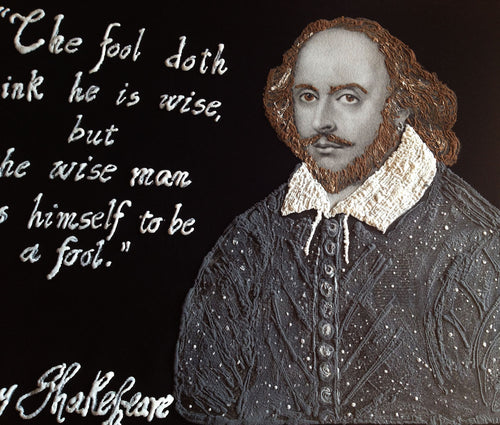 "The fool doth
ink he is wise,
but
he wise man
s himself to be
a fool."
y Shakespeare